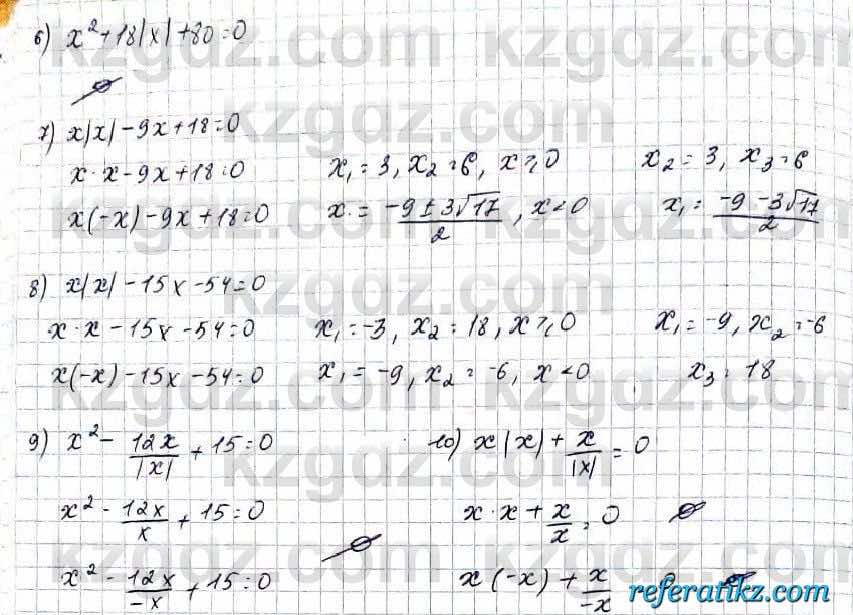 6) x² + 18|x| + 80 = 0
∅
7) x|x| - 9x + 18 = 0
x · x - 9x + 18 = 0 x₁ = 3, x₂ = 6, x ⩾ 0 x₂ = 3, x₃ = 6
x(-x) - 9x + 18 = 0 x = (-9 ± 3√17)/2, x < 0 x₁ = (-9 - 3√17)/2
8) x|x| - 15x - 54 = 0
x · x - 15x - 54 = 0 x₁ = -3, x₂ = 18, x ⩾ 0 x₁ = -9, x₂ = -6
x(-x) - 15x - 54 = 0 x₁ = -9, x₂ = -6, x < 0 x₃ = 18
9) x² - 12x/|x| + 15 = 0 10) x|x| + x/|x| = 0
x² - 12x/x + 15 = 0 x · x + x/x = 0 ∅
∅
x² - 12x/-x + 15 = 0 x(-x) + x/-x
kzgdz.com
referatikz.com